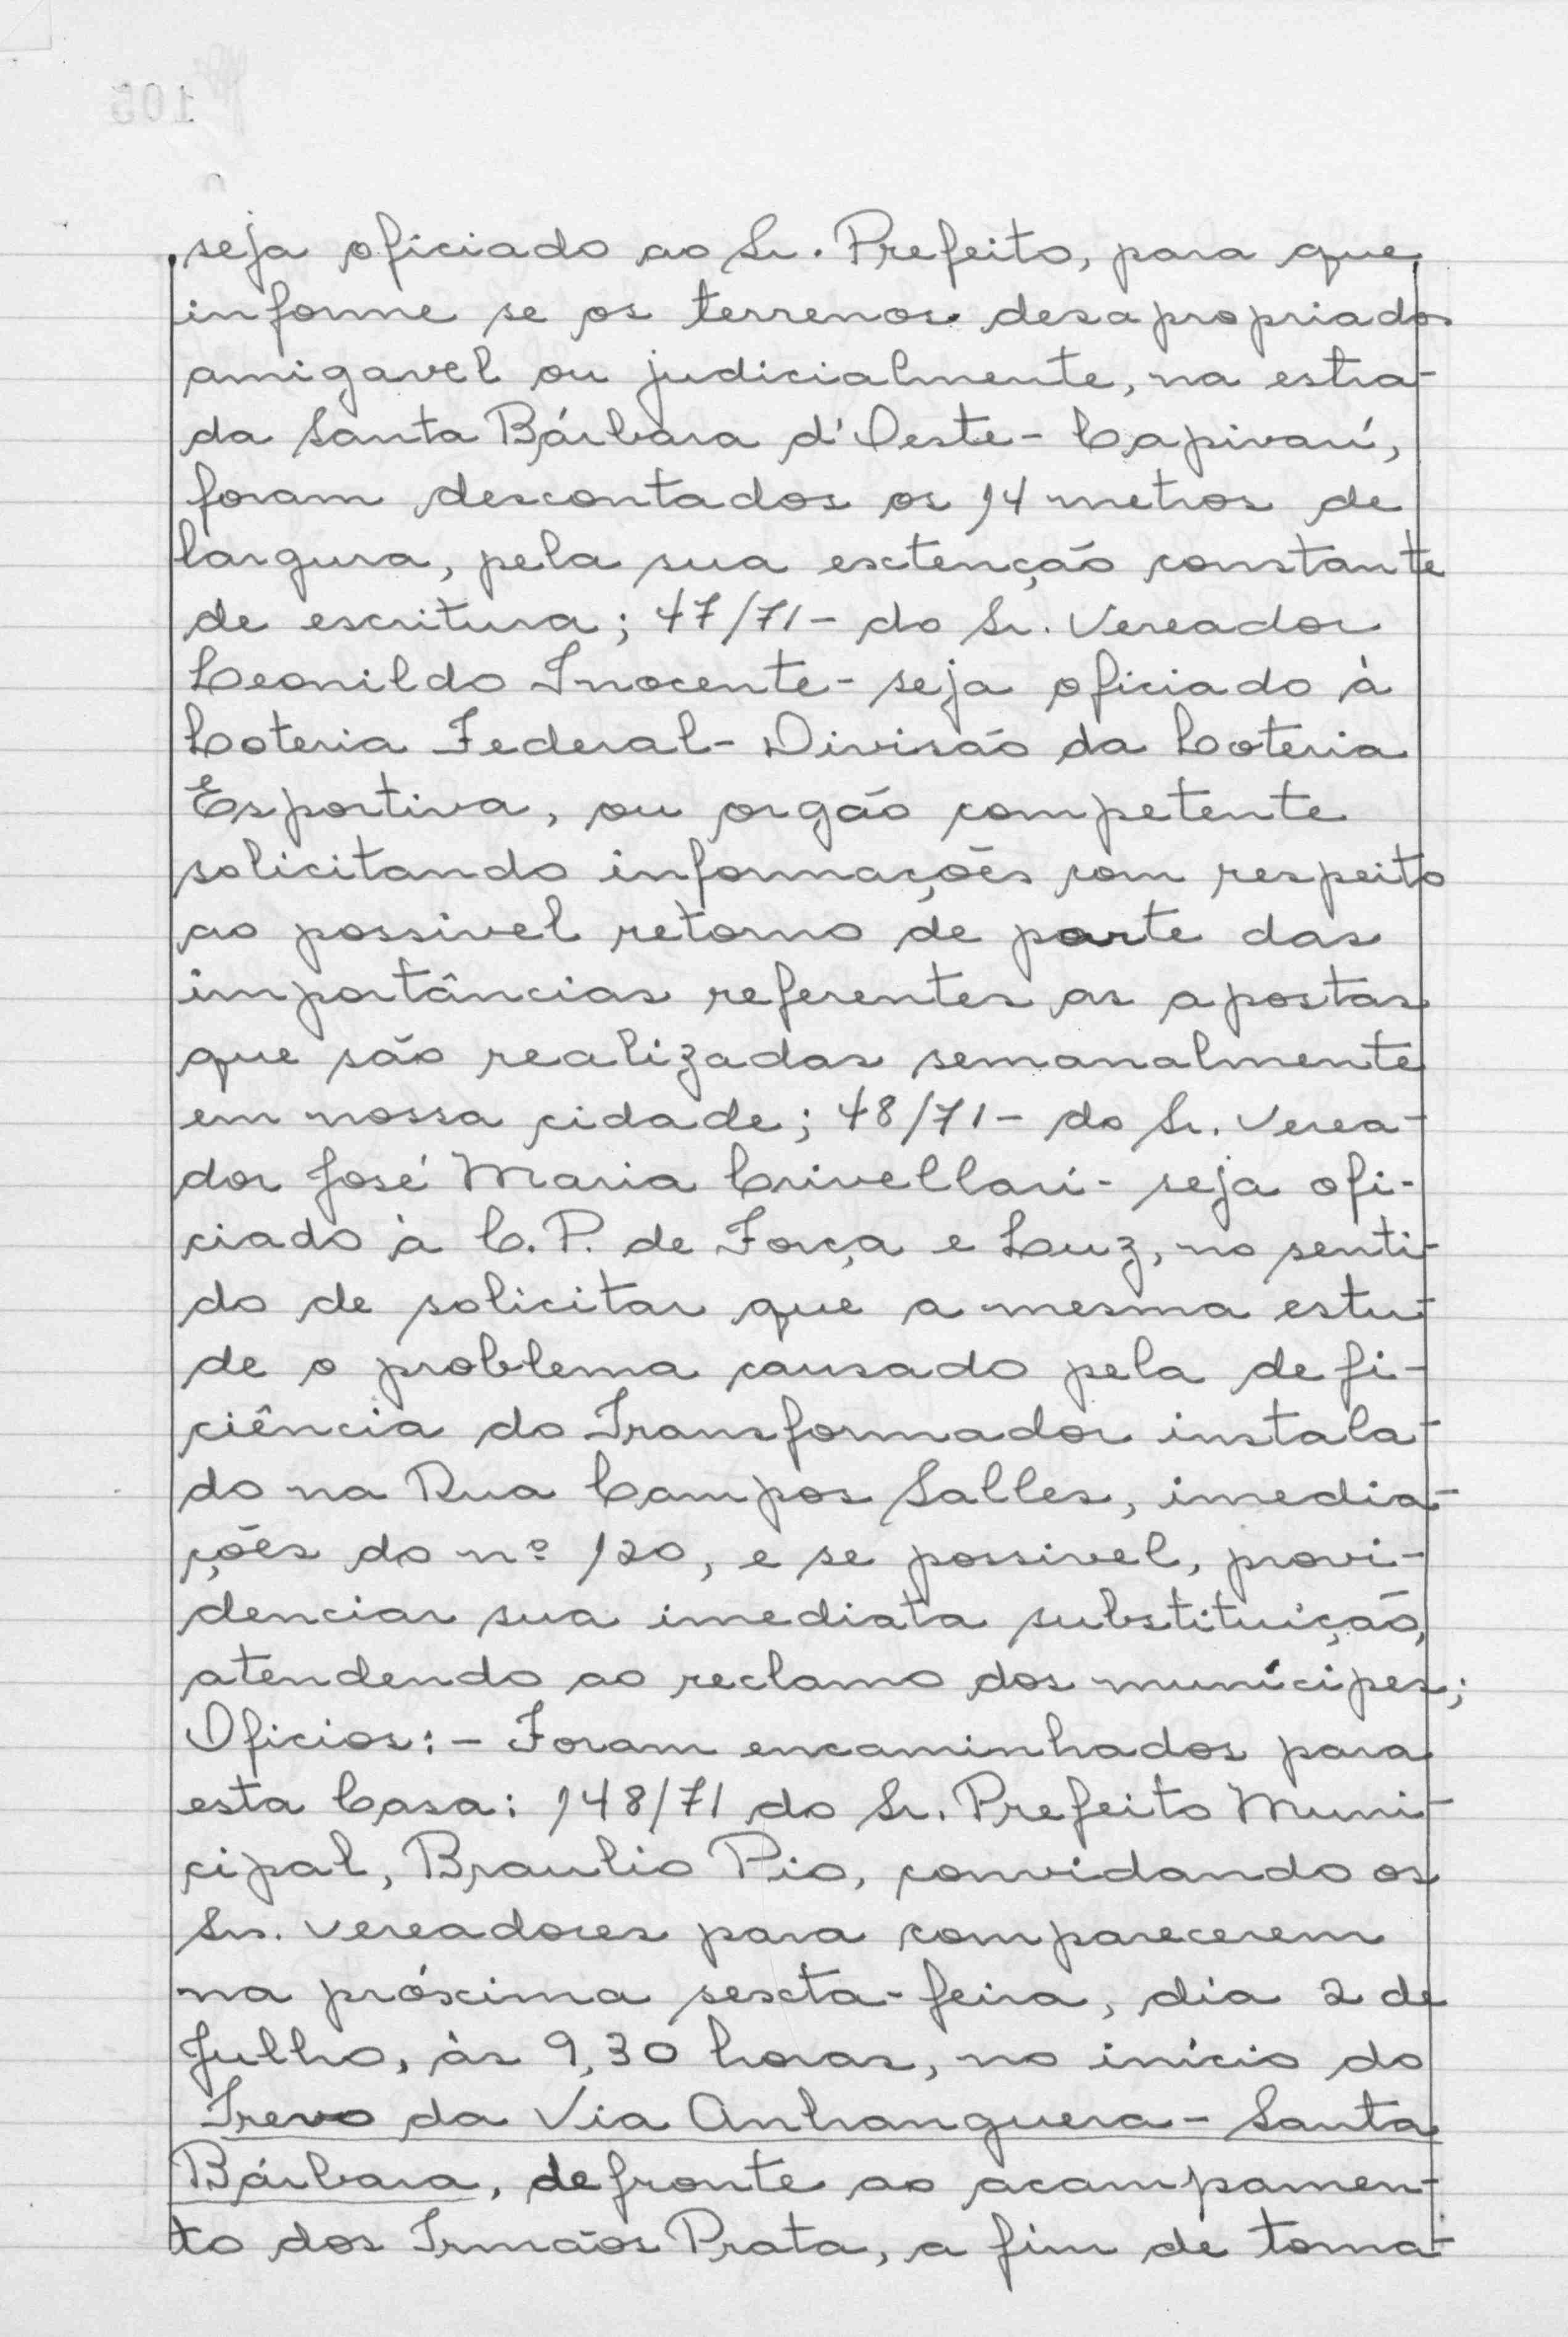 seja oficiado ao Sr. Prefeito, para que
informe se os terrenos desapropriados
amigavel ou judicialmente, na estra-
da Santa Bárbara d'Oeste - Capivarí,
foram descontados os 14 metros de
largura, pela sua extenção constante
de escritura; 47/71 - do Sr. Vereador
Leonildo Inocente - seja oficiado à
Loteria Federal - Divisão da Loteria
Esportiva, ou orgão competente
solicitando informações com respeito
ao possivel retorno de parte das
importâncias referentes as apostas
que são realizadas semanalmente
em nossa cidade; 48/71 - do Sr. Verea-
dor José Maria Crivellari - seja ofi-
ciado à C. P. de Força e Luz, no senti-
do de solicitar que a mesma estu-
de o problema causado pela defi-
ciência do Transformador instala-
do na Rua Campos Salles, imedia-
ções do nº 120, e se possivel, provi-
denciar sua imediata substituição,
atendendo ao reclamo dos munícipes;
Oficios: - Foram encaminhados para
esta Casa: 148/71 do Sr. Prefeito Muni-
cipal, Braulio Pio, convidando os
Srs. Vereadores para comparecerem
na próxima sexta-feira, dia 2 de
Julho, às 9,30 horas, no início do
Trevo da Via Anhanguera - Santa
Bárbara, defronte ao acampamen-
to dos Irmãos Prata, a fim de toma-